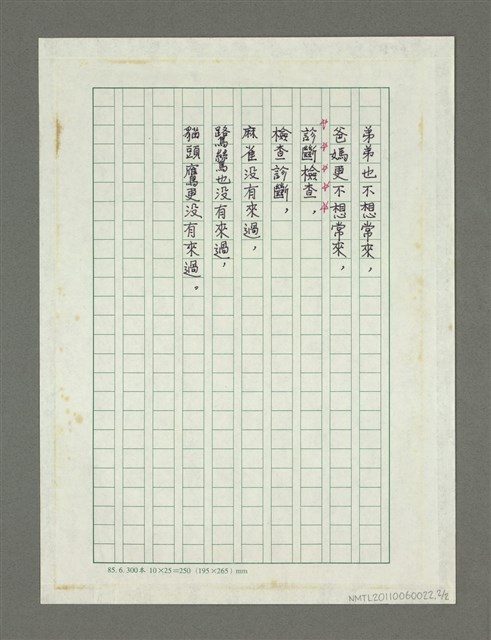 弟弟也不想常來，
爸媽更不想常來，
診斷檢查，
檢查診斷，
麻雀没有來過，
鷺鷥也没有來過，
貓頭鷹更没有來過。
85. 6. 300本 10×25=250 (195×265) mm
NMTL20110060022, 2/2